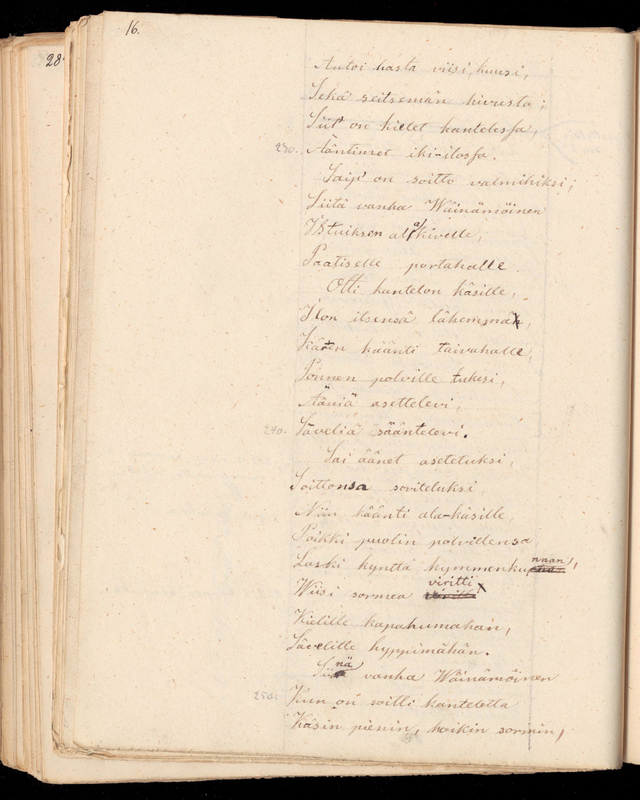 16.
28
Antoi hasta viisi, kuusi,
Sekä seitsemän hivusta;
Siit' on kielet kantelessa,
230. Ääntimet iki-ilossa.
Saip' on soitto valmihiksi;
Siitä vanha Wäinämöinen
Istuiksen alakivelle,
Paatiselle portahalle.
Otti kantelon käsille,
Ilon itsensä lähemmä,
Kären käänti taivahalle,
Ponnen polville tukesi,
Ääniä asettelevi,
240. Säveliä sääntelevi.
Sai äänet asetetuksi,
Soittonsa sovitetuksi,
Niin käänti ala-käsille,
Poikki puolin polvillensa
Laski kynttä kymmenkunnaan,
Wiisi sormea viritti
Kielille kapahumahan,
Sävelille hyppimähän.
Siinä vanha Wäinämöinen
250. Kun on soitti kanteletta
Käsin pienin, hoikin sormin,